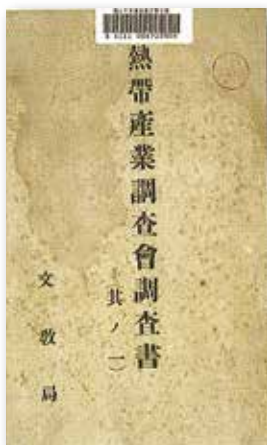 熱帶產業調查會調查書
(其ノ一)
文敎局